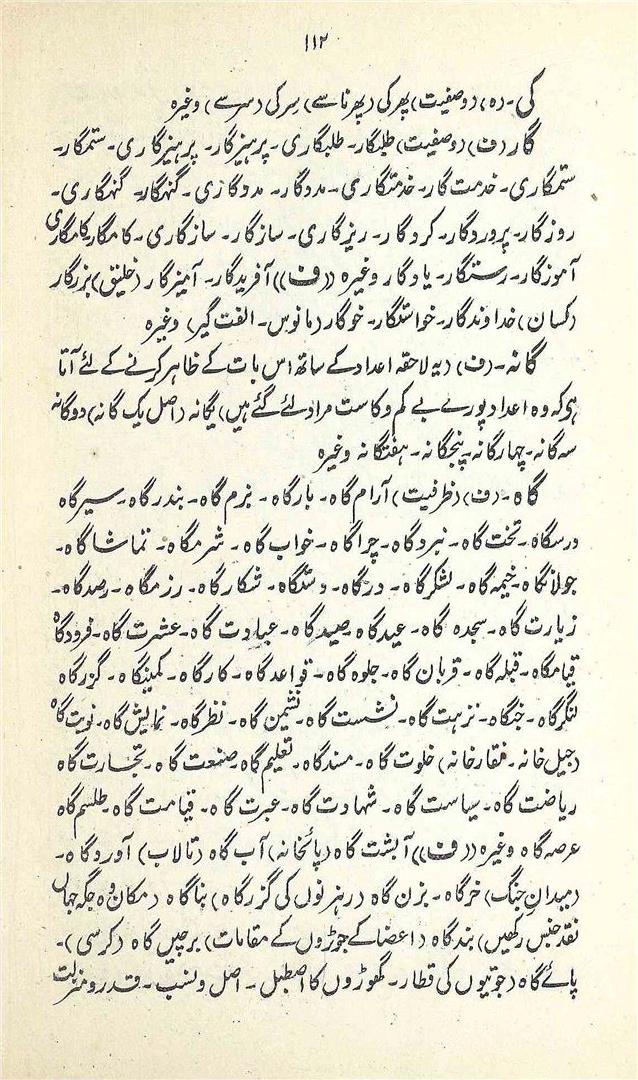 ۱۱۲
کی۔ (ہ) (وصفیت) پھرکی (پھرنا سے) سِرکی (سر سے) وغیرہ
گار (ف) (وصفیت) طلبگار۔ طلبگاری۔ پرہیزگار۔ پرہیزگاری۔ ستمگار۔
ستمگاری۔ خدمت گار۔ خدمتگاری۔ مددگار۔ مددگاری۔ گنہگار۔ گنہگاری۔
روزگار۔ پروردگار۔ کردگار۔ ریزگاری۔ سازگار۔ سازگاری۔ کامگار۔ کامگاری
آموزگار۔ رستگار۔ یادگار وغیرہ ((ف)) آفریدگار۔ آمیزگار (خلیق) بزرگار
(کسان) خداوندگار۔ خواستگار۔ خوگار (مانوس۔ الفت گیر) وغیرہ
گانہ۔ (ف) (یہ لاحقہ اعداد کے ساتھ اس بات کے ظاہر کرنے کے لئے آتا
ہی کہ وہ اعداد پورے بے کم و کاست مراد لئے گئے ہیں) یگانہ (اصل یک گانہ) دوگانہ
سہ گانہ۔ چہارگانہ۔ پنجگانہ۔ ہفتگانہ وغیرہ
گاہ۔ (ف) (ظرفیت) آرام گاہ۔ بارگاہ۔ بزم گاہ۔ بندرگاہ۔ سیرگاہ
درسگاہ۔ تخت گاہ۔ نبردگاہ۔ چراگاہ۔ خواب گاہ۔ شرمگاہ۔ تماشاگاہ۔
جولانگاہ۔ خیمہ گاہ۔ لشکرگاہ۔ درگاہ۔ دستگاہ۔ شکارگاہ۔ رزمگاہ۔ رصدگاہ۔
زیارت گاہ۔ سجدہ گاہ۔ عیدگاہ۔ صیدگاہ۔ عبادت گاہ۔ عشرت گاہ۔ فرودگاہ
قیامگاہ۔ قبلہ گاہ۔ قربان گاہ۔ جلوہ گاہ۔ قواعدگاہ۔ کارگاہ۔ کمینگاہ۔ گزرگاہ
لنگرگاہ۔ جنگاہ۔ نزہت گاہ۔ نشست گاہ۔ نشیمن گاہ۔ نظرگاہ۔ نمایش گاہ۔ نوبت گاہ
(جیل خانہ۔ نقارخانہ) خلوت گاہ۔ مسندگاہ۔ تعلیم گاہ۔ صنعت گاہ۔ تجارت گاہ
ریاضت گاہ۔ سیاست گاہ۔ شہادت گاہ۔ عبرت گاہ۔ قیامت گاہ۔ طلسم گاہ
عرصہ گاہ وغیرہ ((ف)) آبشت گاہ (پائخانہ) آب گاہ (تالاب) آوردگاہ۔
(میدانِ جنگ) خرگاہ۔ بزن گاہ (رہزنوں کی گزرگاہ) بناگاہ (مکان وہ جگہ جہاں
نقد جنس رکھیں) بندگاہ (اعضا کے جوڑوں کے مقامات) برچیں گاہ (کرسی)۔
پائے گاہ (جوتیوں کی قطار۔ گھوڑوں کا اصطبل۔ اصل و نسب۔ قدر و منزلت